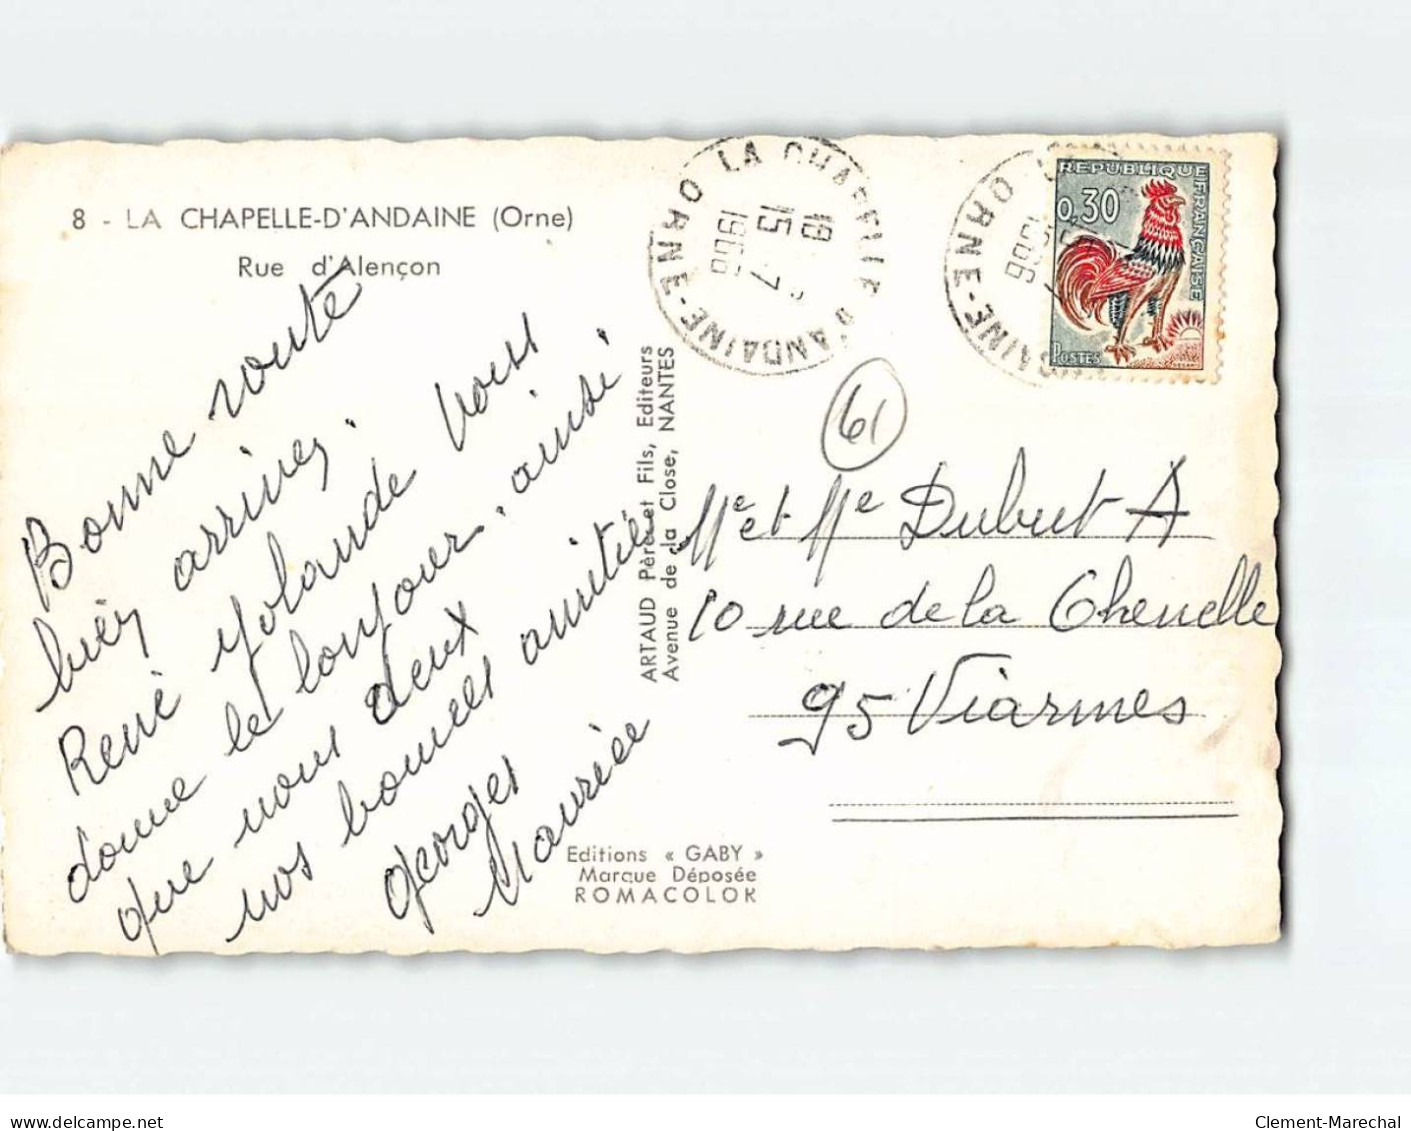 8 - LA CHAPELLE-D'ANDAINE (Orne)
Rue d'Alençon
Bonne route
bien arrivés.
René Yolande vous
donne le bonjour, ainsi
que nous deux
nos bonnes amitiés
Georges
Maurice
ARTAUD Père et Fils, Editeurs
Avenue de la Close, NANTES
Editions « GABY »
Marque Déposée
ROMACOLOR
LA CHAPELLE D'ANDAINE-ORNE
18
15 - 7
1966
ORNE
1966
REPUBLIQUE FRANÇAISE
0,30
POSTES
61
Mr et Me Dubut A
10 rue de la Chenelle
95 Viarmes
Clement-Marechal
delcampe.net